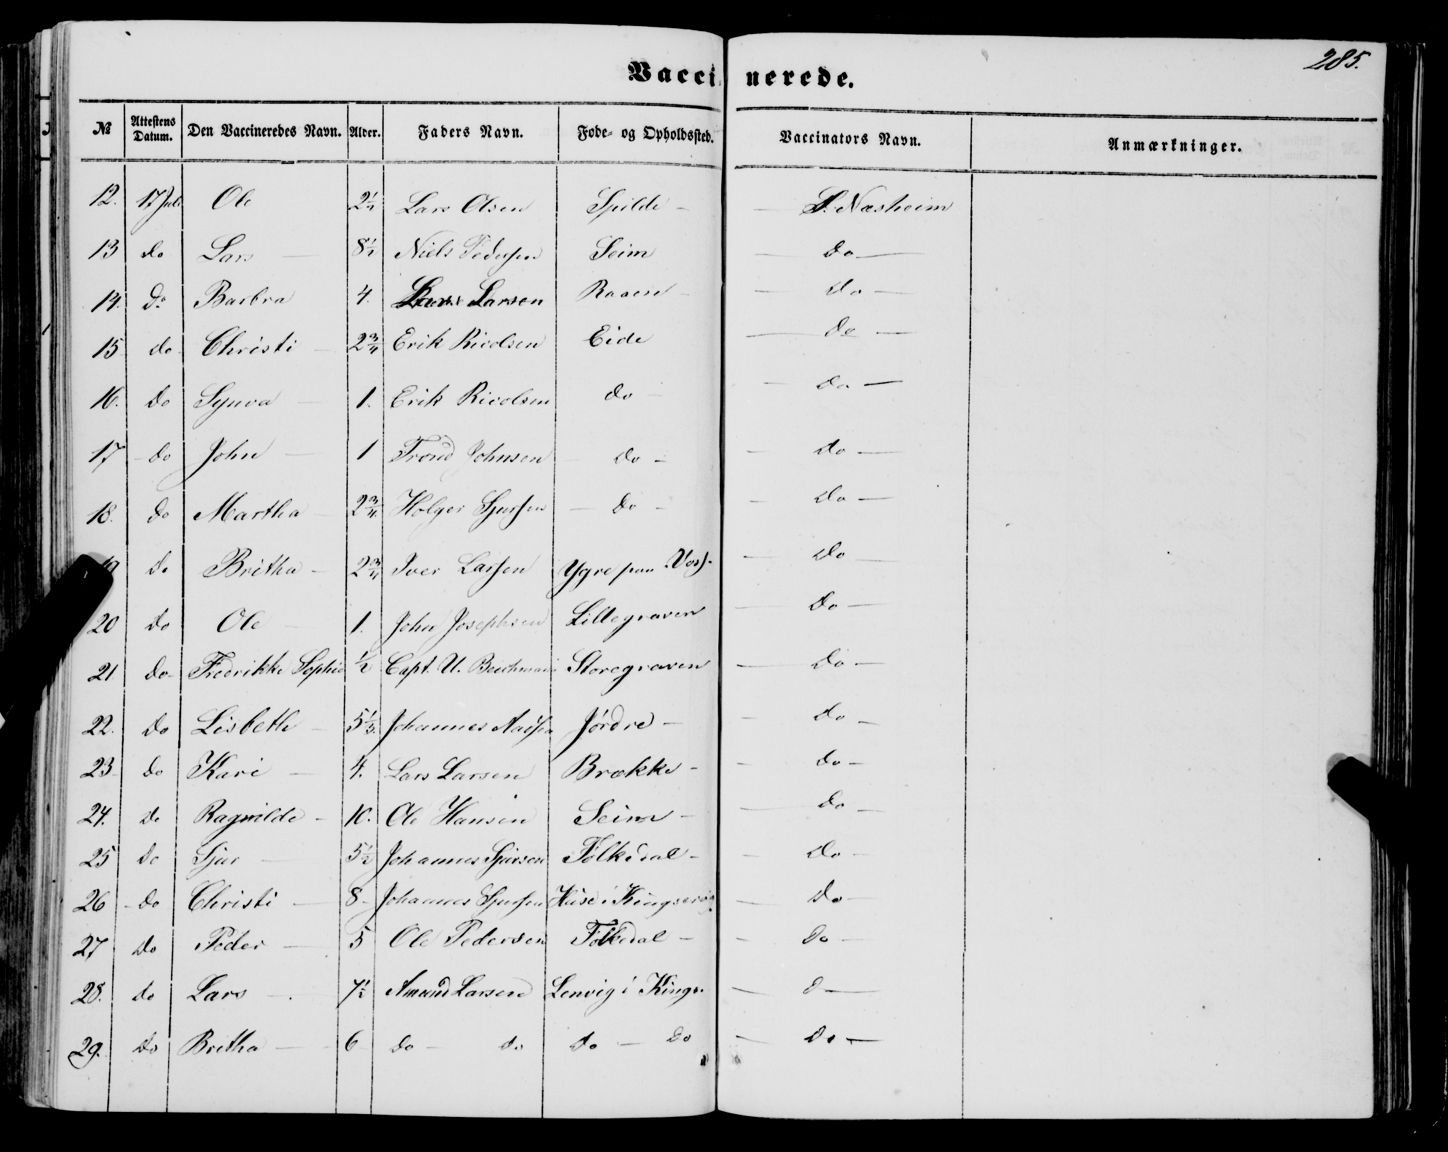 285.
Vaccinerede.
№ Attestens Datum. Den Vaccineredes Navn. Alder. Faders Navn. Føde- og Opholdssted. Vaccinators Navn. Anmærkninger.
12. 17 Juli Ole 2¼ Lars Olsen Spilde - S. Næsheim
13 do Lars 8½ Niels Pedersen Seim do
14. do Barbra 4. Larsen Raaen do
15 do Christi 2¾ Erik Rioelsen Eide do
16. do Synva 1. Erik Rioelsen do do
17 do John 1 Trond Johnsen do do
18. do Martha 2¾ Holger Sjursen do do
19 do Britha 2¾ Iver Larsen Ygre paa Vos do
20 do Ole 1. John Josephsen Lillegraven do
21 do Fredrikke Sophie ½ Capt. U. Storegraven do
22. do Lisbeth 5½ Johannes Jördre do
23 do Kari 4. Lars Larsen Brække do
24. do Ragnilde 10. Ole Hansen Seim do
25 do Sjur 5½ Johannes Sjursen Folkedal do
26 do Christi 8 Johannes Sjursen do
27 do Peder 5 Ole Pedersen Folkedal do
28. do Lars 7½ Amund Larsen Lenvig i Kings. d
29. do Britha 6 do do do do do